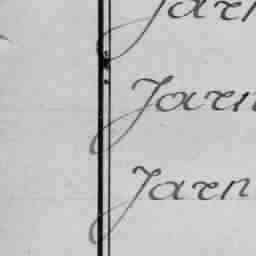 Jarn
Jarn
Jarn